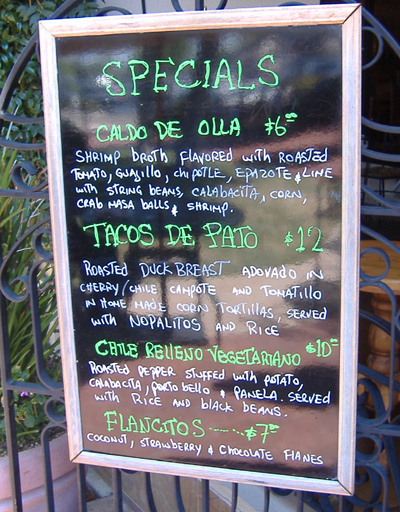 SPECIALS
CALDO DE OLLA $6.00
SHRIMP BROTH FLAVORED WITH ROASTED
TOMATO, GUAJILLO, CHIPOTLE, EPAZOTE & LIME
WITH STRING BEANS, CALABACITA, CORN,
CRAB MASA BALLS & SHRIMP.
TACOS DE PATO $12
ROASTED DUCK BREAST ADOVADO IN
CHERRY/CHILE CAMPOTE AND TOMATILLO
IN HOME MADE CORN TORTILLAS, SERVED
WITH NOPALITOS AND RICE
CHILE RELLENO VEGETARIANO $10.00
ROASTED PEPPER STUFFED WITH POTATO,
CALABACITA, PORTOBELLO & PANELA. SERVED
WITH RICE AND BLACK BEANS.
FLANCITOS ----- $7.00
COCONUT, STRAWBERRY & CHOCOLATE FLANES